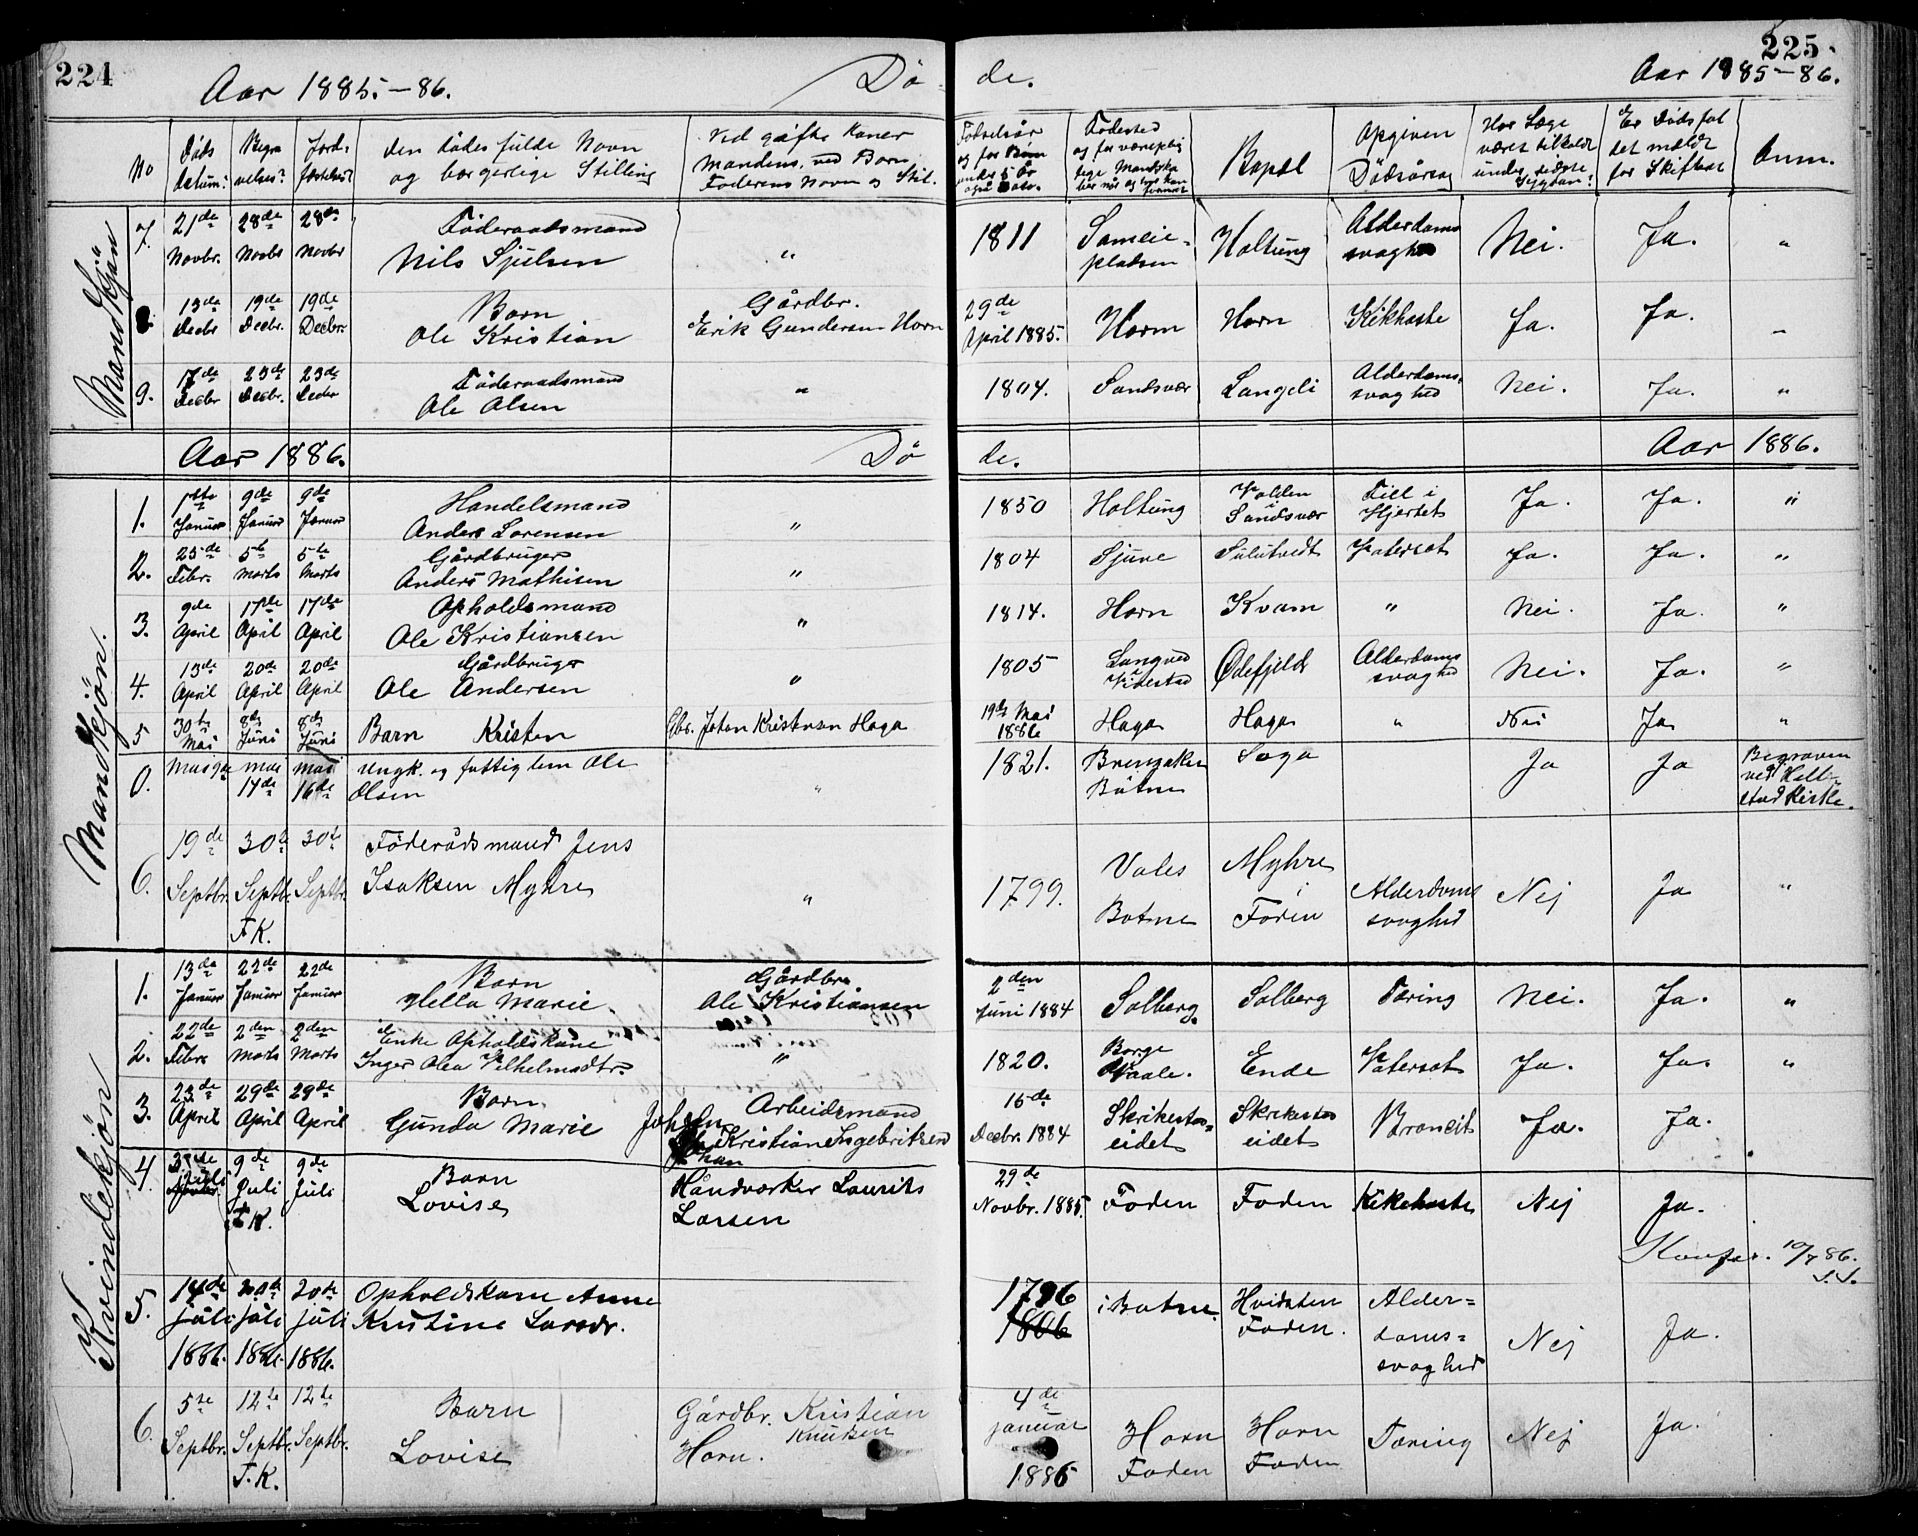 224
Aar 1885.-86.
Dö
de.
Aar 1885-86.
225
No
Döds datum:
Begra velses:
Jord- fæstelses
den dødes fulde Navn og borgerlige Stilling
Ved gifte Koner Mandens, ved Børn Faderens Navn og Stil.
Fødselsår og for Børn under 5 år også Dato.
Fødested
Bopæl
Opgiven Dödsårsag
Har Læge været tilkaldt under sidste Sygdom?
Er Dödsfal det meldt for Skifteret
Anm.
Mandkjön
7. 21de Novbr. 28de Novbr 28de Novbr Föderaadsmand Nils Sjulsen " 1811 Sameie-pladsen Holtung Alderdoms svaghed Nei. Ja. "
8 13de Decbr 19de Decbr. 19de Decbr. Barn Ole Kristian Gårdbr. Erik Gundersen Horn 29de April 1885. Horn Horn Kikhoste Ja. Ja. "
9. 17de Decbr 23de Decbr. 23de Decbr Föderaadsmand Ole Olsen " 1804. Sandsvær Langeli Alderdoms-svaghed Nei. Ja. "
Aar 1886.
Dö
de.
Aar 1886.
Mandkjön.
1. 1ste Januar 9de Januar 9de Januar Handelsmand Anders Lorensen " 1850 Holtung Volden i Sandsvær Feil i Hjertet Ja. Ja. "
2. 25de Febr. 5te Marts 5te Marts Gårdbruger Anders Mathisen " 1804 Sjuve Sulutvedt Vatersot Ja. Ja. "
3. 9de April 17de April 17de April Opholdsmand Ole Kristiansen " 1814. Horn Kvam " Nei. Ja. "
4. 13de April 20de April 20de April Gårdbruger Ole Andersen " 1805 Langved i Videstad Ødefjeld Alderdoms svaghed Nei. Ja. "
5 30te Mai 8de Juni 8de Juni Barn Kristen Gbr. Johan Kristian Haga 19de Mai 1886 Haga Haga " Nei Ja "
0. Mai 9de Mai 17de Mai 16de Ungk. og fattiglem Ole Olsen " 1821. Botne Ja Ja Begraven ved Hille stad Kirke.
6. 19de Septbr. 30te Septbr. F.K. 30te Septbr. Föderådsmand Jens Isaksen Myhre " 1799. Vales Botne Myhre i Foden Alderdoms svaghed Nej Ja "
Kvindekjön
1. 13de Januar 22de Januar 22de Januar Barn Hella Marie. Gårdbr. Ole Kristiansen 2den Juni 1884 Solberg. Solberg Tæring Nei. Ja. "
2. 22de Febr. 2den Marts 2den Marts Enke Opholdskone Inger Olea Vilhelmsdtr. " 1820. Borge Vaale. Ende Vatersot Ja. Ja. "
3. 23de April 29de April 29de April Barn Gunda Marie Arbeidsmand Johan Kristian Ingebriktsen 16de Decbr. 1884 Skrikestad-eidet Skrikestad eidet Broncit Ja. Ja.
4. Juli 9de Juli F.K. 9de Juli Barn Lovise Håndværker Laurits Larsen 29de Novbr. 1885. Foden Foden Kikehoste Nej Ja.
10/7 86. S.S.
5. 14de juli 1886. 20de juli 1886. 20de juli 1886. Opholdskone Anne Kristine Larsdr. 1796 1806 i Botne. Hvidsten Foden. Alder=doms=svaghed Nej Ja.
6. 5te Septbr. 12te Septbr. F.K. 12te Septbr. Barn Lovise Gårdbr. Kristian Knutsen Horn. 4de januar 1886 Horn Foden Horn Foden Tæring Nej Ja.